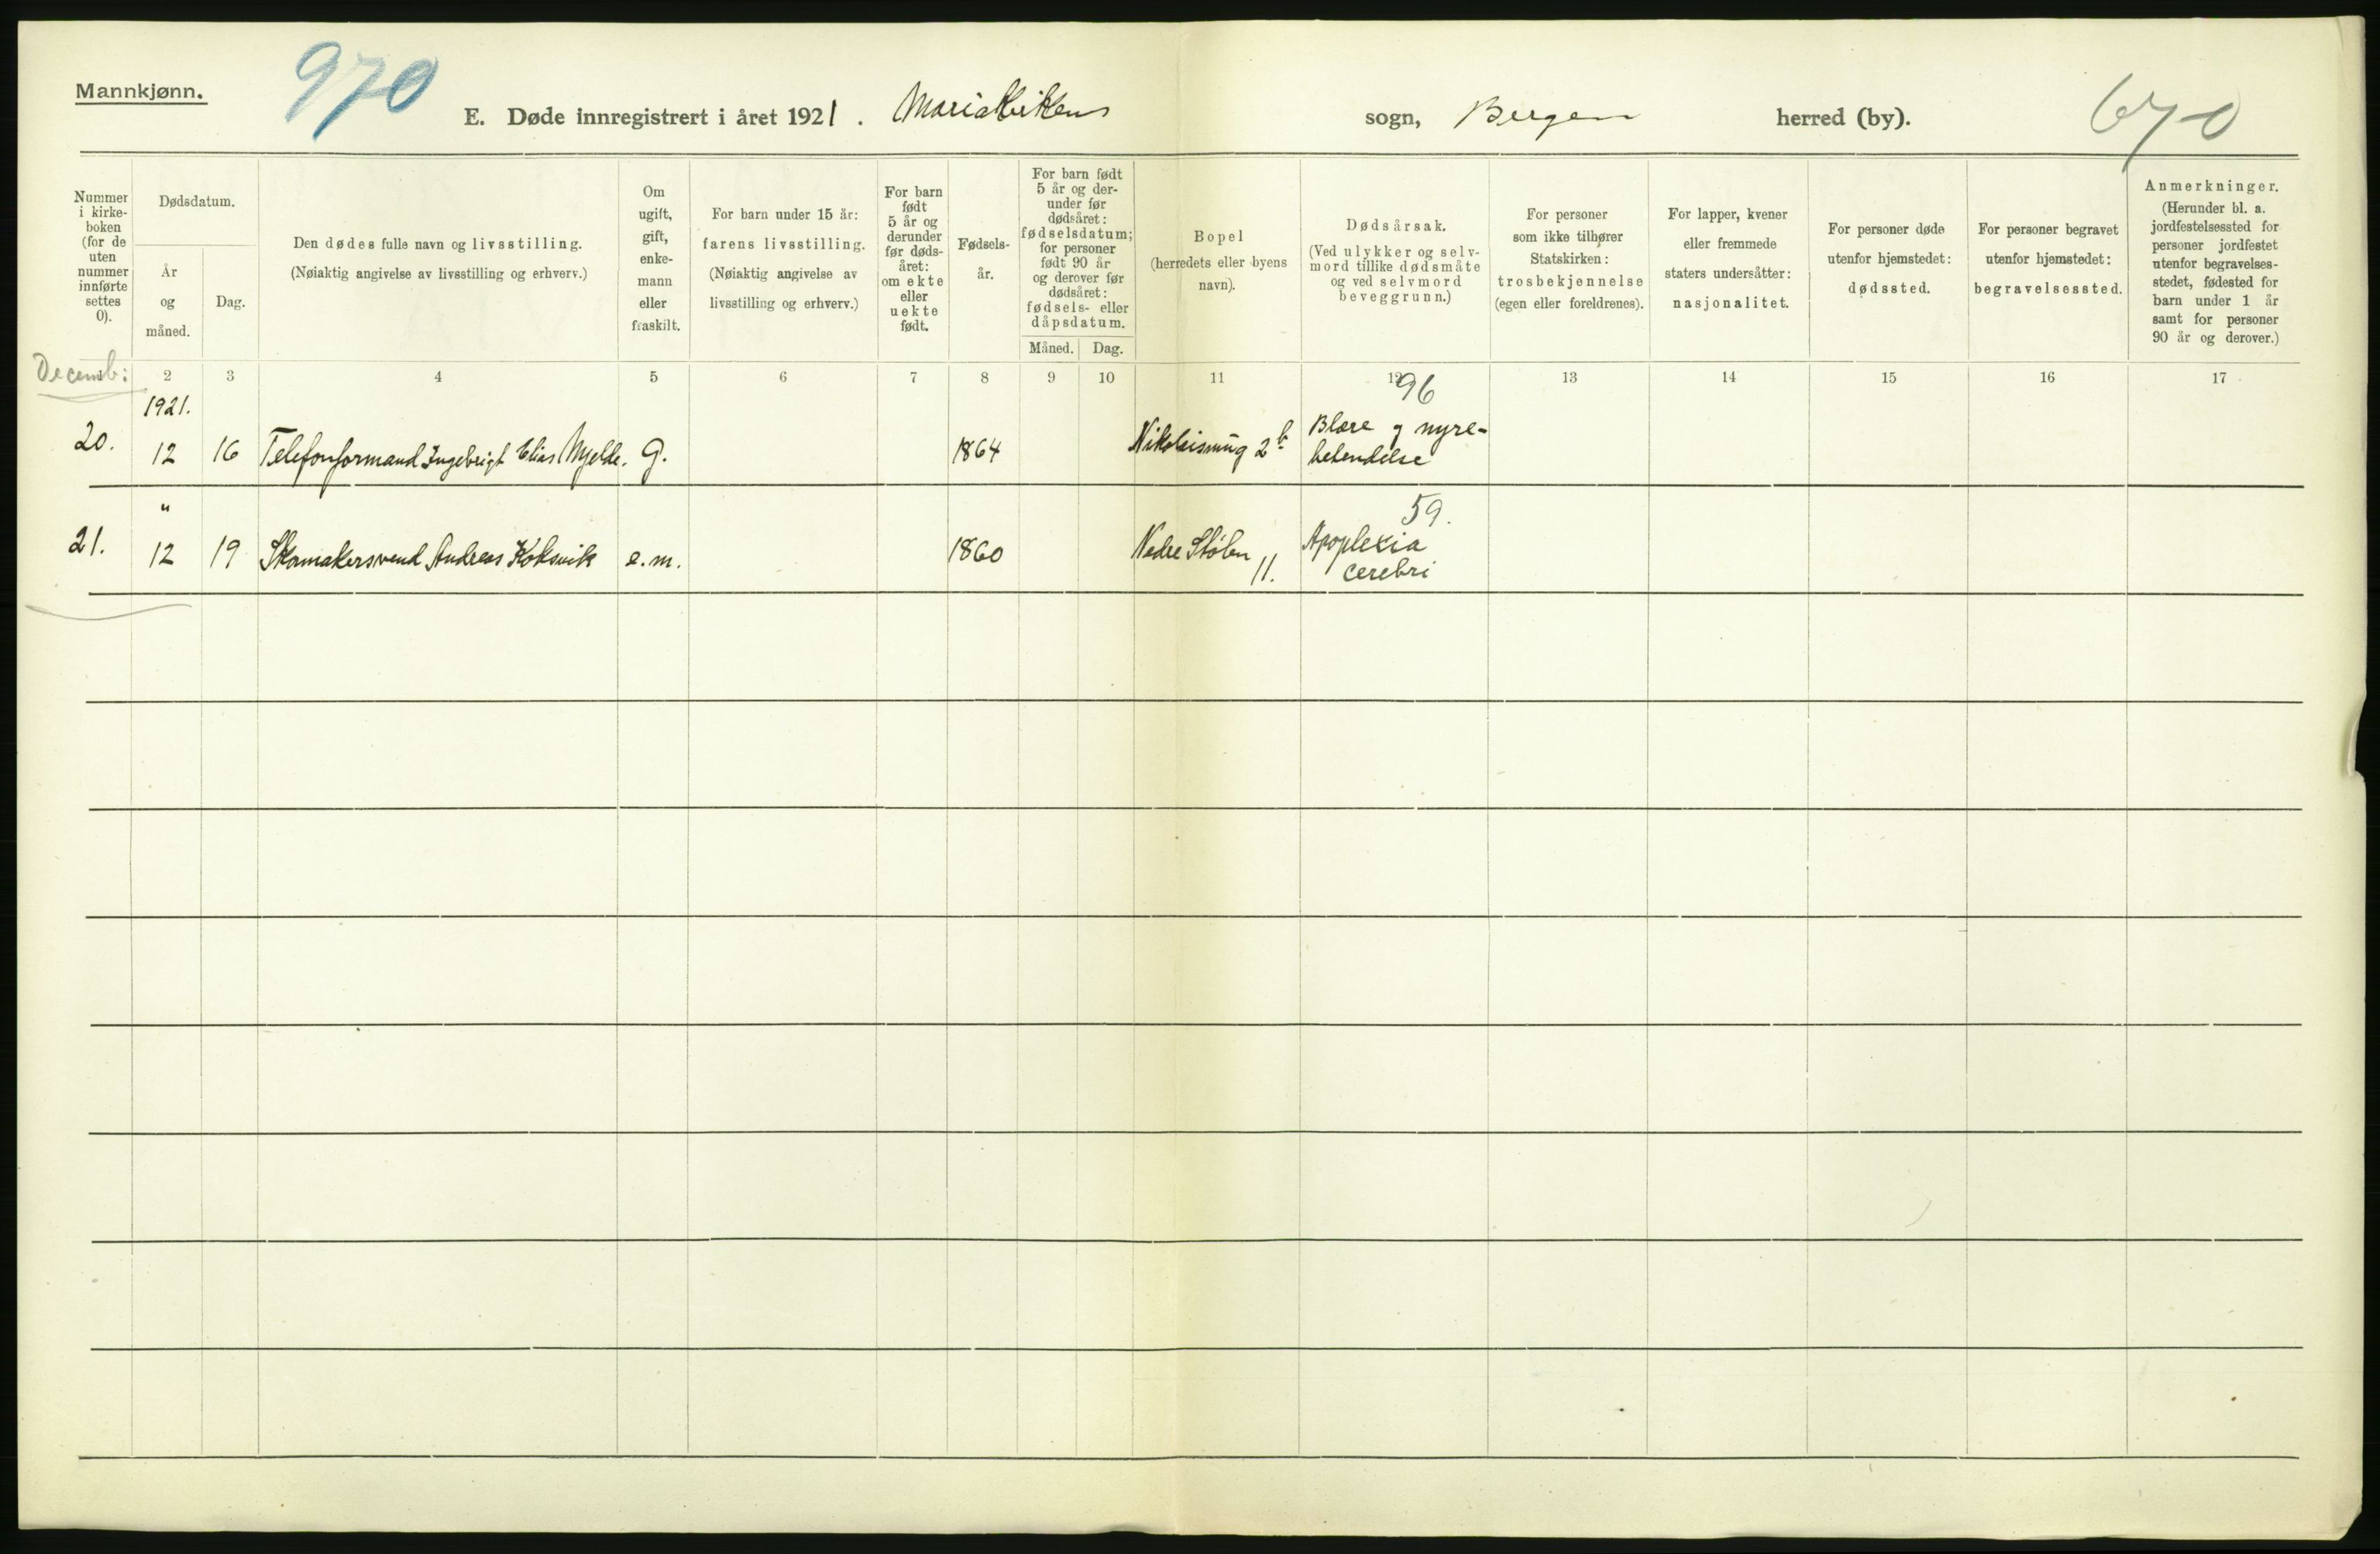 Mannkjønn.
970
E. Døde innregistrert i året 1921. Mariakirkens sogn, Bergen herred (by).
670
Nummer i kirke- boken (for de uten nummer innførte settes 0).
Dødsdatum.
År og måned.
Dag.
Den dødes fulle navn og livsstilling.
(Nøiaktig angivelse av livsstilling og erhverv.)
Om ugift, gift, enke- mann eller fraskilt.
For barn under 15 år:
farens livsstilling.
(Nøiaktig angivelse av livsstilling og erhverv.)
For barn født 5 år og derunder før døds- året: om ekte eller uekte født.
Fødsels- år.
For barn født 5 år og der- under før dødsåret: fødselsdatum; for personer født 90 år og derover før dødsåret: fødsels- eller dåpsdatum.
Måned. Dag.
Bopel
(herredets eller byens navn).
Dødsårsak.
(Ved ulykker og selv- mord tillike dødsmåte og ved selvmord beveggrunn.)
For personer som ikke tilhører Statskirken: trosbekjennelse (egen eller foreldrenes).
For lapper, kvener eller fremmede staters undersåtter: nasjonalitet.
For personer døde utenfor hjemstedet: dødssted.
For personer begravet utenfor hjemstedet: begravelsessted.
Anmerkninger.
(Herunder bl. a. jordfestelsessted for personer jordfestet utenfor begravelses- stedet, fødested for barn under 1 år samt for personer 90 år og derover.)
Decemb:
2 3 4 5 6 7 8 9 10 11 12 13 14 15 16 17
1921.
96
20. 12 16 Telefonformand Ingebrigt Elias Mjelde. G. 1864 2b Blære og nyre-
betendelse
"
59.
21. 12 19 Skomakersvend Andreas Koksvik e.m. 1860 Nedre Stølen 11. Apoplexia
cerebri